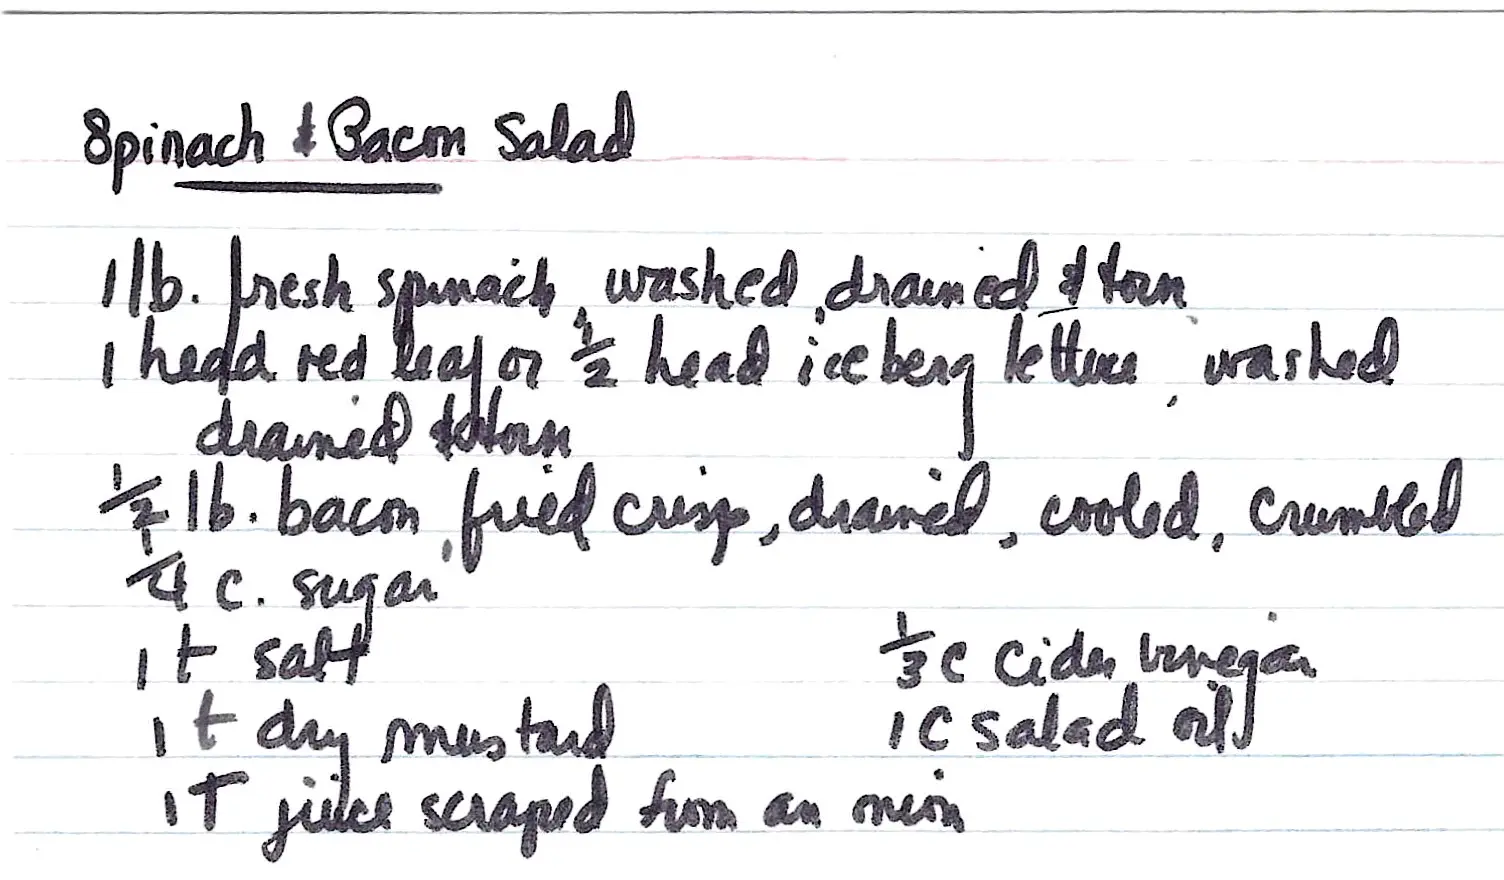 Spinach & Bacon Salad
1 lb. fresh spinach, washed, drained & torn
1 head red leaf or 1/2 head iceberg lettuce, washed
drained & torn
1/2 lb. bacon, fried crisp, drained, cooled, crumbled
1/4 c. sugar
1 t salt
1/3 c cider vinegar
1 t dry mustard
1 C salad oil
1 T juice scraped from an onion